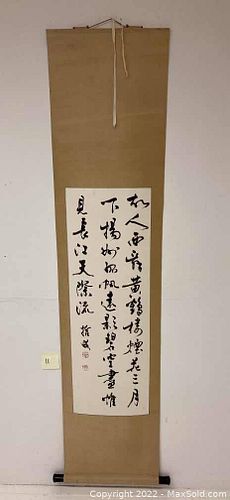 故人西辭黃鶴樓煙花三月
下揚州孤帆遠影碧空盡惟
見長江天際流
Copyright 2022 - MaxSold.com